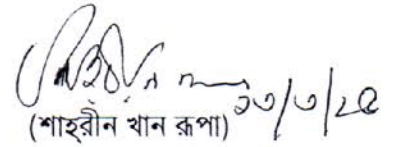 ২৩/৩/২৫
(শাহ্‌রীন খান রূপা)